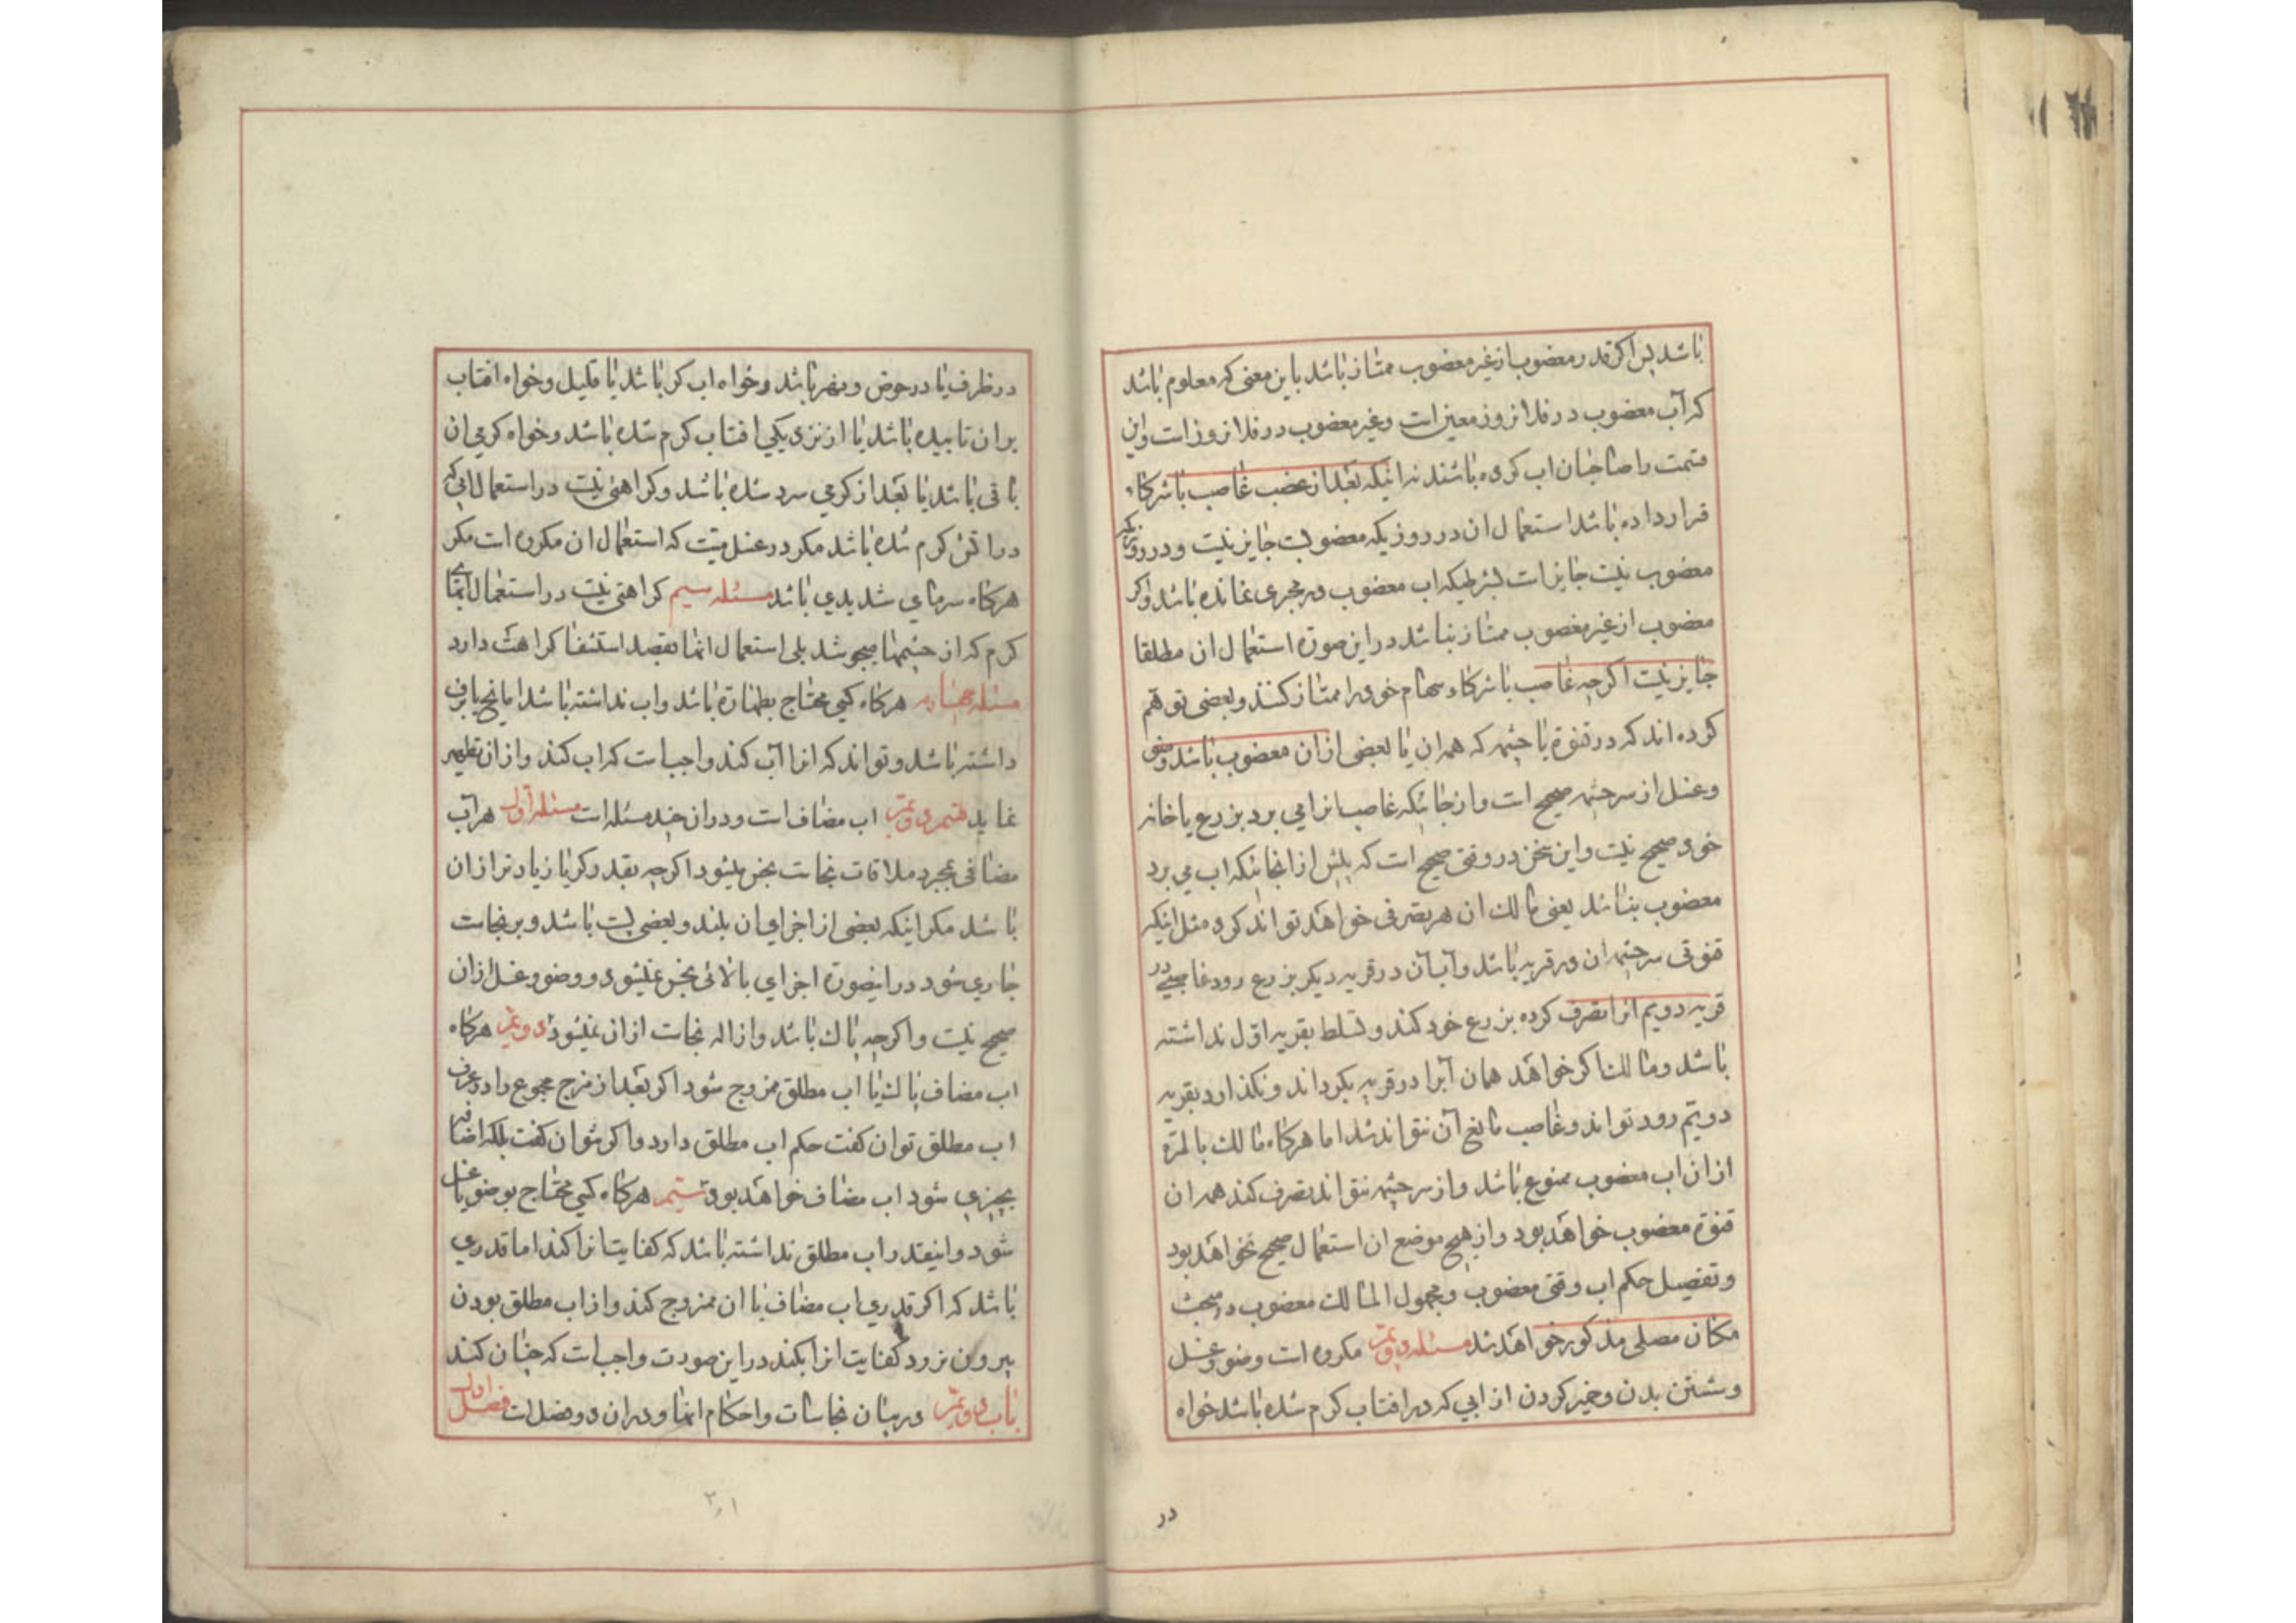 باشد پس اگر قدر مغضوب از غیر مغضوب ممتاز باشد باین معنی که معلوم باشد
که آب مغضوب در فلان روز معین است و غیر مغضوب در فلان روز است و این
قسمت را صاحبان اب کرده باشند نه اینکه بعد از غضب غاصب با شرکاء
قرار داده باشد استعمال ان در روزیکه مغضوبست جایز نیست و در روزیکه
مغضوب نیست جایز است بشرطیکه اب مغضوب در مجری نمانده باشد و اکر
مغضوب از غیر مغصوب ممتاز نباشد در این صورة استعمال ان مطلقا
جایز نیست اکرچه غاصب با شرکاء سهام خود را ممتاز کنند و بعضی توهم
کرده اند که در قنوة یا چشمه که همه ان یا بعضی از ان مغضوب باشد وضو
و غسل از سر چشمه صحیح است و از جائیکه غاصب انرا می برد بزرع یا خانه
خود صحیح نیست و این سخن در وقتی صحیح است که پیش از انجائیکه اب می برد
مغضوب نباشد یعنی مالک ان هر تصرفی خواهد تواند کرد مثل اینکه
قنوتی سر چشمه ان در قریه باشد و آب آن در قریه دیکر بزرع رود غاصبی در
قریه دویم انرا تصرف کرده بزرع خود کند و تسلط بقریه اول نداشته
باشد و مالک اکر خواهد همان آبرا در قریه بکرداند و نکذارد بقریه
دویم رود تواند و غاصب مانع آن نتواند شد اما هرکاه مالک بالمرة
از ان اب مغضوب ممنوع باشد و از سر چشمه نتواند تصرف کند همه ان
قنوة مغضوب خواهد بود و از هیچ موضع ان استعمال صحیح نخواهد بود
و تفصیل حکم اب وقتی مغضوب و مجهول المالک مغضوب در مبحث
مکان مصلی مذکور خواهد شد مسئله دویم مکروه است وضو و غسل
و شستن بدن و خمیر کردن از ابی که در افتاب کرم شده باشد خواه
در
در ظرف یا در حوض و نهر باشد و خواه اب کر باشد یا قلیل و خواه افتاب
بر ان تابیده باشد یا از نزدیکی افتاب کرم شده باشد و خواه کرمی ان
باقی باشد یا بعد از کرمی سرد شده باشد و کراهتی نیست در استعمال ابی که
در اتش کرم شده باشد مکر در غسل میت که استعمال ان مکروه است مکر
هرکاه سرمای شدیدی باشد مسئله سیم کراهتی نیست در استعمال ابهای
کرم که از چشمها میجوشد بلی استعمال انها بقصد استشفا کراهت دارد
مسئله چهارم هرکاه کسی محتاج بطهارة باشد و اب نداشته باشد اما یخ یا برف
داشته باشد و تواند که انرا آب کند واجبست که اب کند و از ان تطهیر
نماید قسم دویم اب مضاف است و در ان چند مسئله است مسئله اول هر آب
مضافی بمجرد ملاقات نجاست نجس میشود اکرچه بقدر کر یا زیادتر از ان
باشد مکر اینکه بعضی از اجزای ان بلند و بعضی پست باشد و بر نجاست
جاری شود در اینصورة اجزای بالائی نجس نمیشود و وضو و غسل از ان
صحیح نیست و اکرچه پاک باشد و ازاله نجاست از ان نمیشود دویم هرکاه
اب مضاف پاک با اب مطلق ممزوج شود اکر بعد از مزج مجموع را در عرف
اب مطلق توان کفت حکم اب مطلق دارد و اکر نتوان کفت بلکه اضافه
بچیزی شود اب مضاف خواهد بود سیم هرکاه کسی محتاج بوضو یا غسل
شود و اینقدر اب مطلق نداشته باشد که کفایت انرا کند اما قدری
باشد که اکر قدری اب مضاف با ان ممزوج کند و از اب مطلق بودن
بیرون نرود کفایت انرا بکند در این صورت واجبست که چنان کند
باب دویم در بیان نجاسات و احکام انها و در ان دو فصل است فصل اول